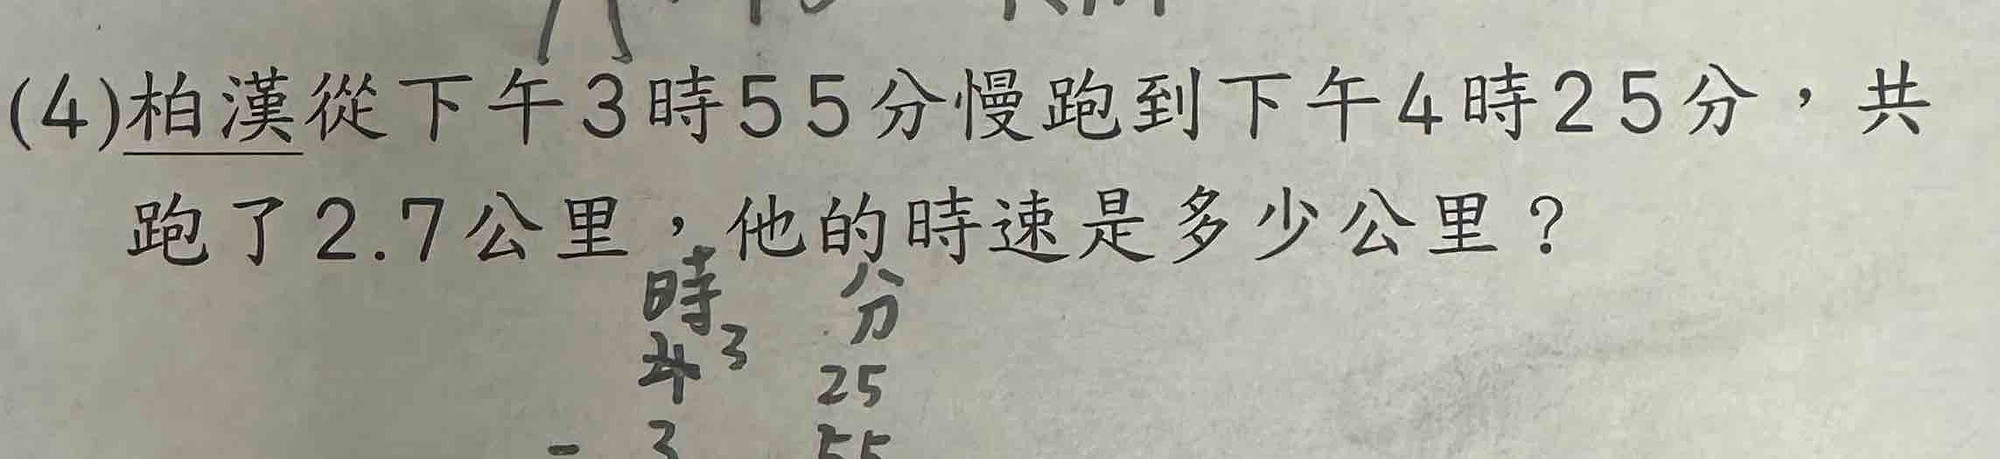 (4)柏漢從下午3時55分慢跑到下午4時25分，共
跑了2.7公里，他的時速是多少公里？
時 分
4 3 25
- 3 55